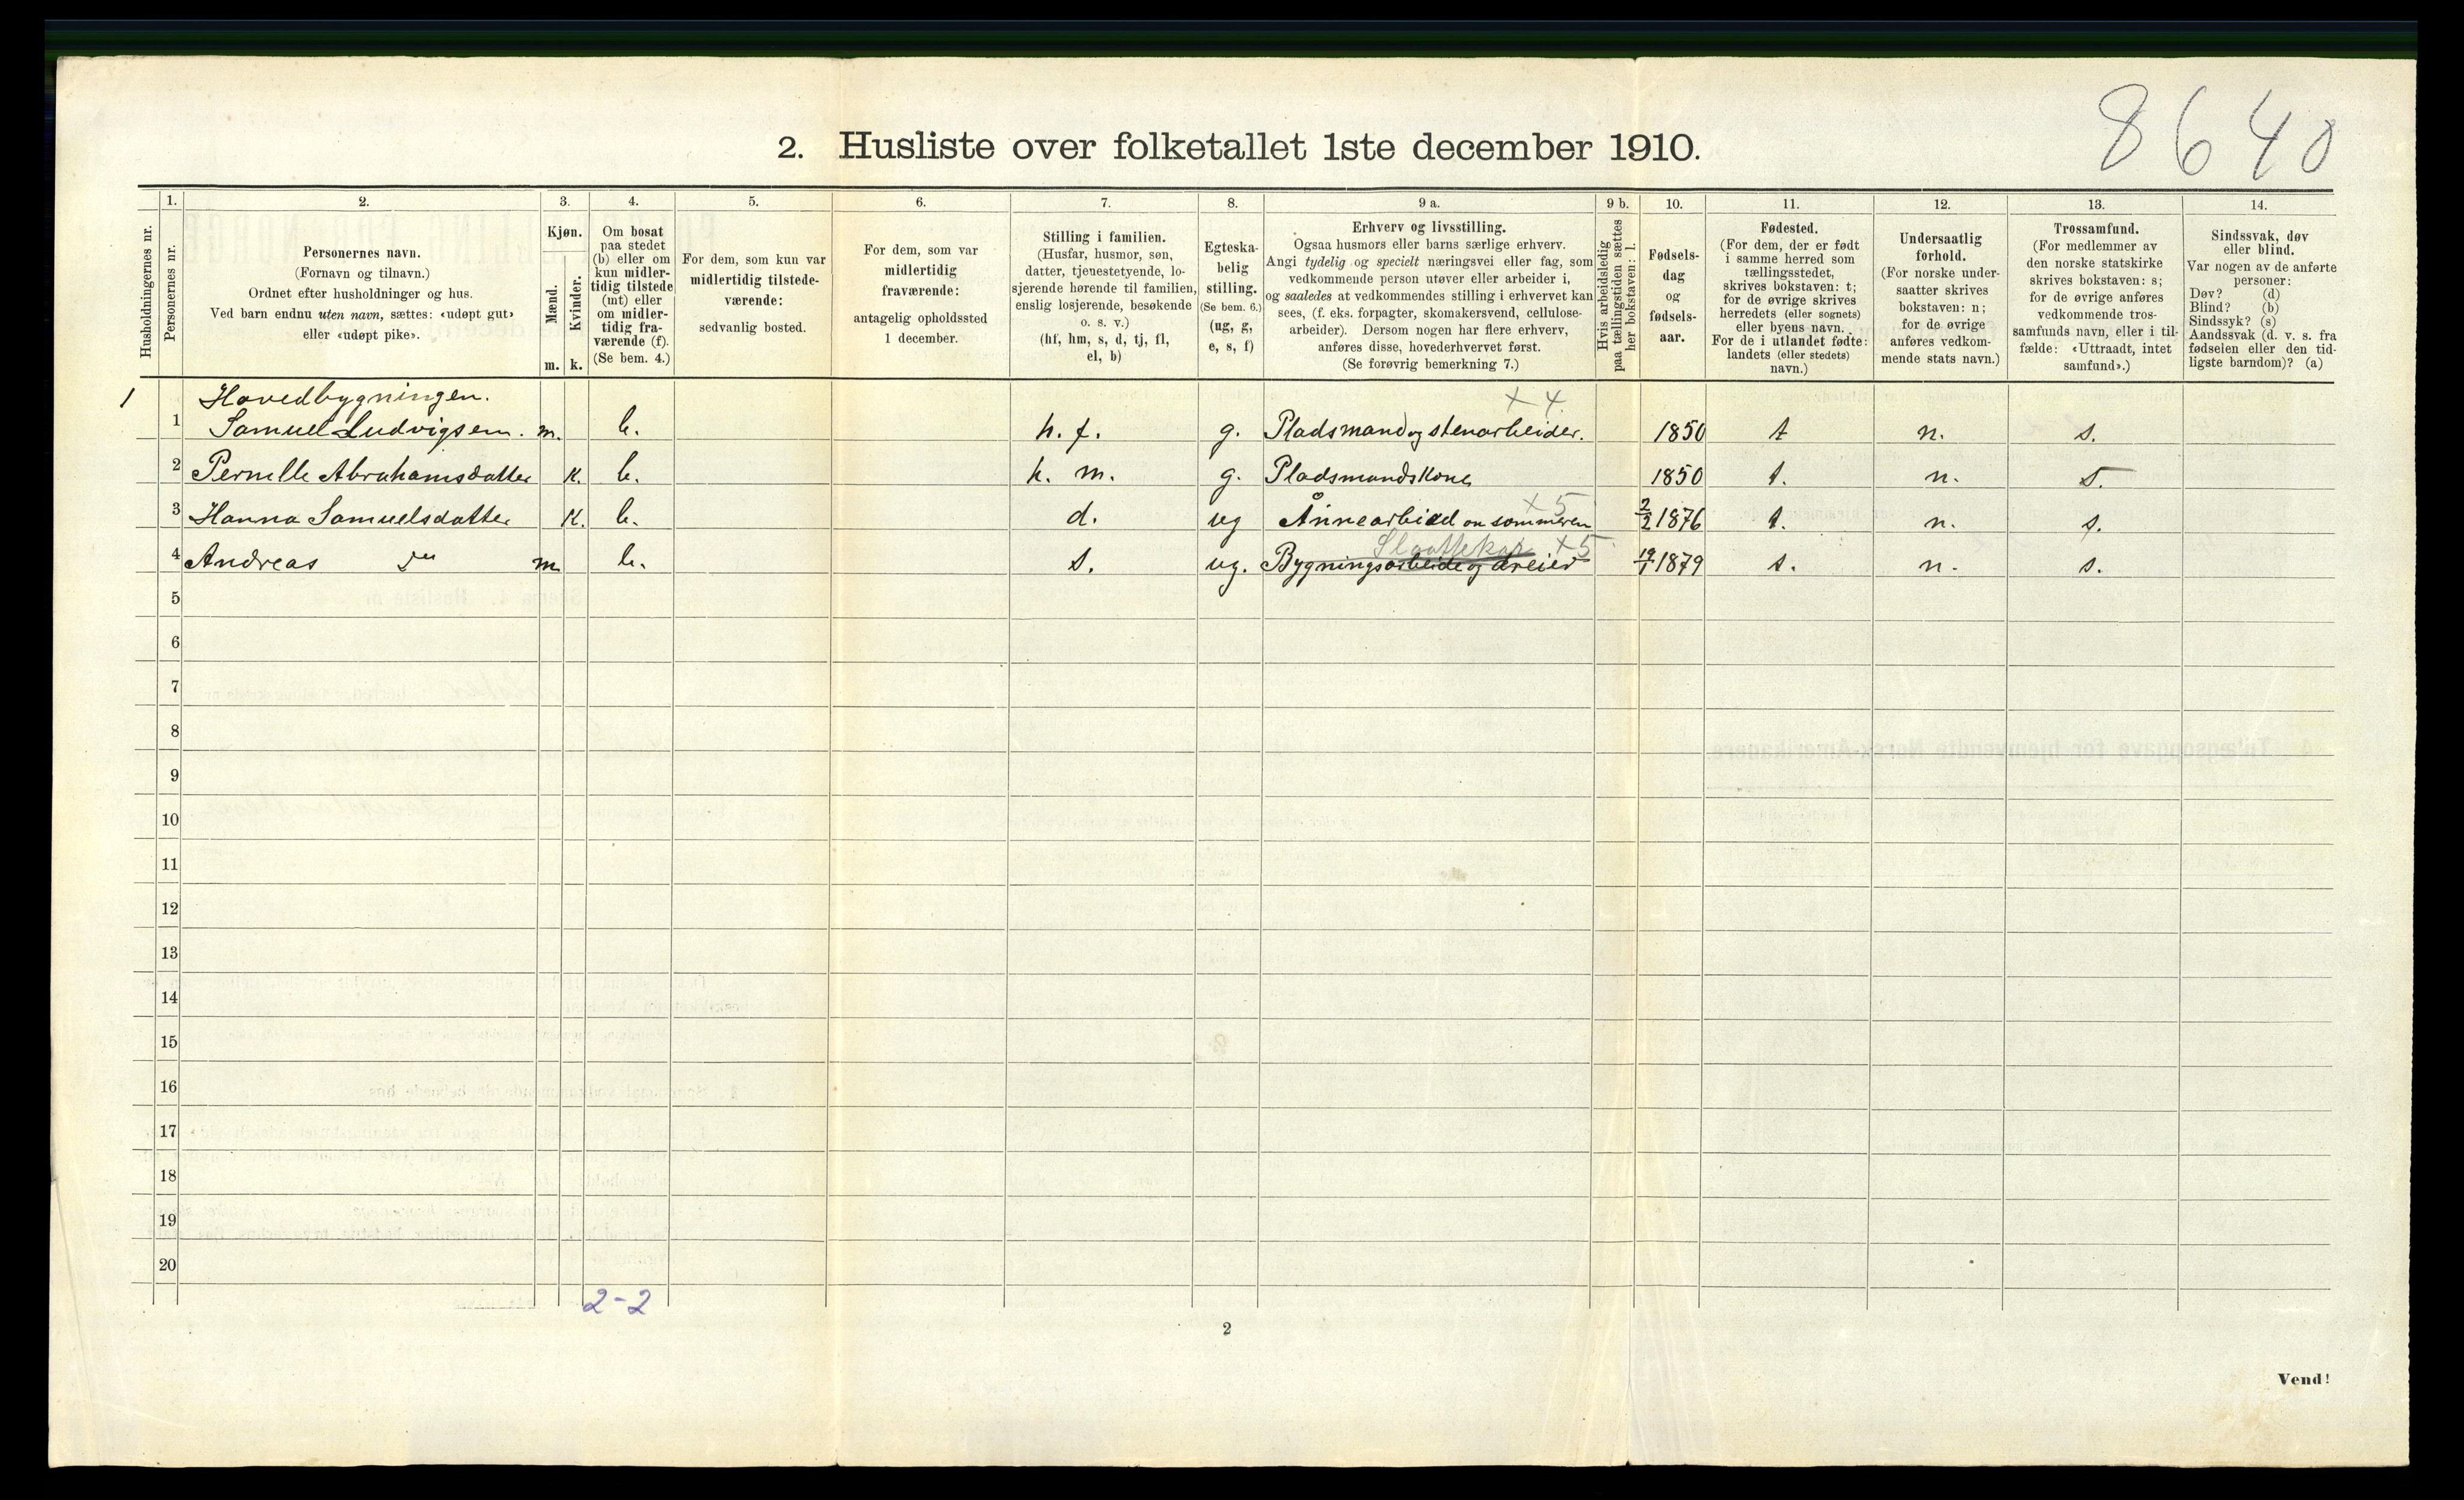 8640
2. Husliste over folketallet 1ste december 1910.
Husholdningernes nr.
1.
Personernes nr.
2.
Personernes navn.
(Fornavn og tilnavn.)
Ordnet efter husholdninger og hus.
Ved barn endnu uten navn, sættes: «udøpt gut»
eller «udøpt pike».
3.
Kjøn.
Mænd.
Kvinder.
m. k.
4.
Om bosat
paa stedet
(b) eller om
kun midler-
tidig tilstede
(mt) eller
om midler-
tidig fra-
værende (f).
(Se bem. 4.)
5.
For dem, som kun var
midlertidig tilstede-
værende:
sedvanlig bosted.
6.
For dem, som var
midlertidig
fraværende:
antagelig opholdssted
1 december.
7.
Stilling i familien.
(Husfar, husmor, søn,
datter, tjenestetyende, lo-
sjerende hørende til familien,
enslig losjerende, besøkende
o. s. v.)
(hf, hm, s, d, tj, fl,
el, b)
8.
Egteska-
belig
stilling.
(Se bem. 6.)
(ug, g,
e, s, f)
9 a.
Erhverv og livsstilling.
Ogsaa husmors eller barns særlige erhverv.
Angi tydelig og specielt næringsvei eller fag, som
vedkommende person utøver eller arbeider i,
og saaledes at vedkommendes stilling i erhvervet kan
sees, (f. eks. forpagter, skomakersvend, cellulose-
arbeider). Dersom nogen har flere erhverv,
anføres disse, hovederhvervet først.
(Se forøvrig bemerkning 7.)
9 b.
Hvis arbeidsledig
paa tællingstiden sættes
her bokstaven: l.
10.
Fødsels-
dag
og
fødsels-
aar.
11.
Fødested.
(For dem, der er født
i samme herred som
tællingsstedet,
skrives bokstaven: t;
for de øvrige skrives
herredets (eller sognets)
eller byens navn.
For de i utlandet fødte:
landets (eller stedets)
navn.)
12.
Undersaatlig
forhold.
(For norske under-
saatter skrives
bokstaven: n;
for de øvrige
anføres vedkom-
mende stats navn.)
13.
Trossamfund.
(For medlemmer av
den norske statskirke
skrives bokstaven: s;
for de øvrige anføres
vedkommende tros-
samfunds navn, eller i til-
fælde: «Uttraadt, intet
samfund».)
14.
Sindssvak, døv
eller blind.
Var nogen av de anførte
personer:
Døv? (d)
Blind? (b)
Sindssyk? (s)
Aandssvak (d. v. s. fra
fødselen eller den tid-
ligste barndom)? (a)
1 Hovedbygningen. + 4
1 Samuel Ludvigsen. m. b. h. f. g. Pladsmand og stenarbeider. 1850 t n. s.
2 Pernille Abrahamsdatter K. b. h. m. g. Pladsmandskone 1850 t. n. s.
+ 5
3 Hanna Samuelsdatter K. b. d. ug Ånnearbied om sommeren 2/2 1876 t. n. s.
+ 5
4 Andreas m b. s. ug. Bygningsarbeide og dreier 19/1 1879 t. n. s.
5
6
7
8
9
10
11
12
13
14
15
16
17
18
19
20
2-2
2
Vend!